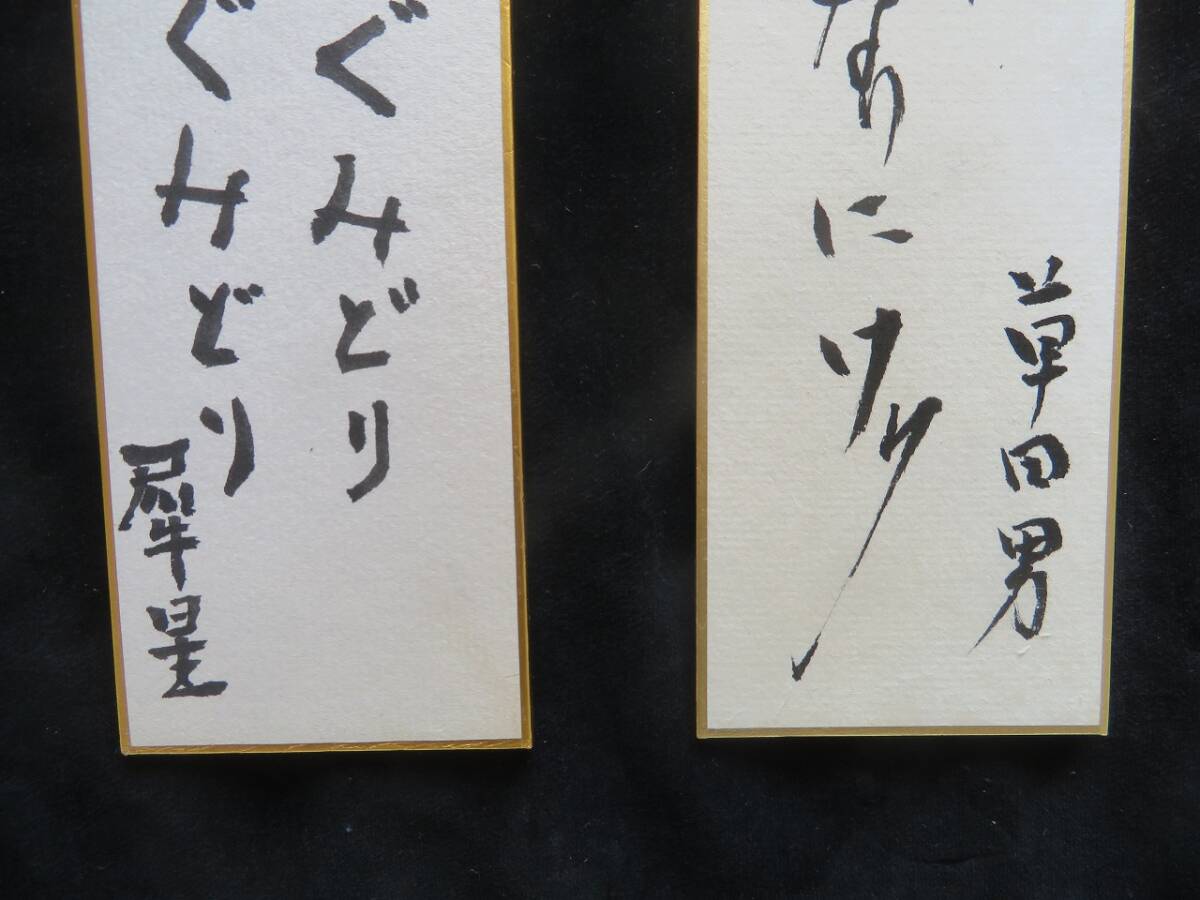 草田男
なりにけり
ぐみどり
ぐみどり
犀星